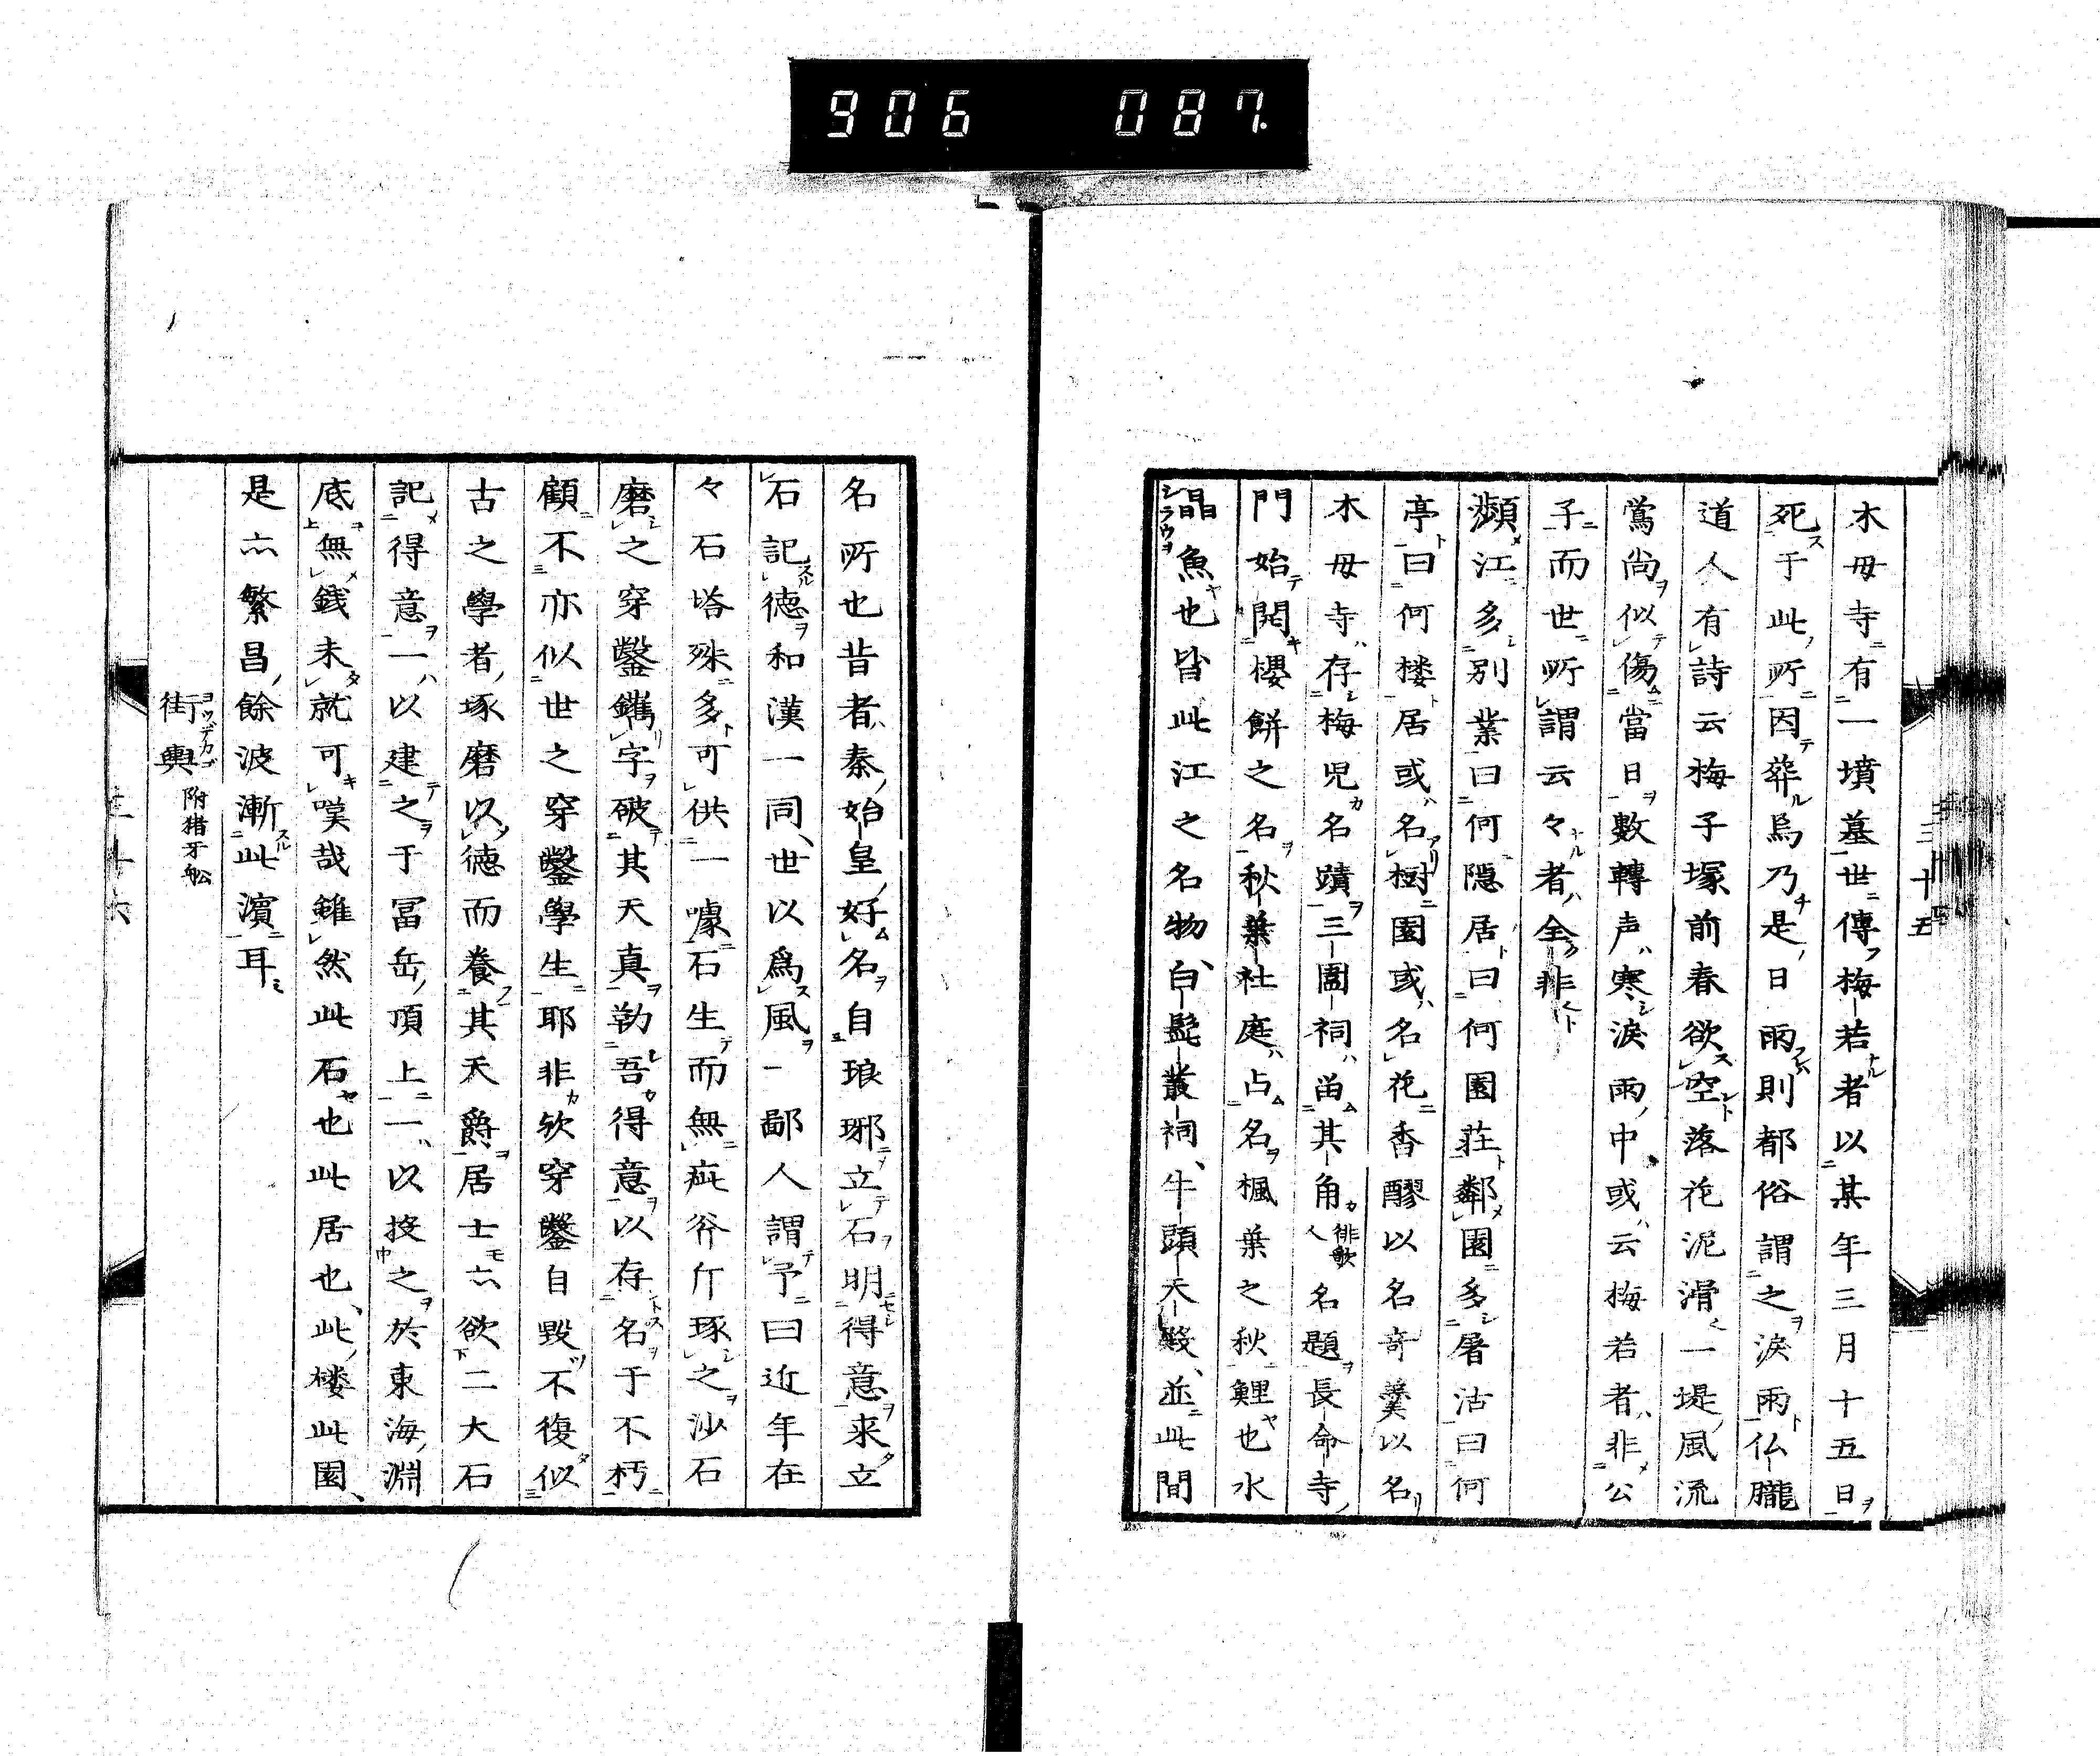 906 087
木母寺有一墳墓世傳梅若者以某年三月十五日
死于此所因葬烏乃是日雨則都俗謂之淚雨仏朧
道人有詩云梅子塚前春欲空落花泥滑一堤風流
鶯尚似傷當日數轉声寒淚雨中或云梅若者非公
子而世所謂云々者全非
瀕江多別業曰何隠居曰何園荘鄰園多屠沽曰何
亭曰何楼居或名樹園或名花香醪以名奇羹以名
木母寺存梅児名蹟三圍祠畄其角俳歌人名題長命寺
門始開櫻餅之名秋葉社庭占名楓葉之秋鯉也水
晶魚也皆此江之名物白髭叢祠牛頭天殘並此間
名所也昔者秦始皇好名自琅琊立石明得意来立
石記德和漢一同世以爲風一鄙人謂予曰近年在
々石塔殊多可供一噱石生而無疵斧斤琢之沙石
磨之穿鑿鐫字破其天真勒吾得意以存名于不朽
顧不亦似世之穿鑿學生耶非欤穿鑿自毀不復似
古之學者琢磨以德而養其天爵居士亦欲二大石
記得意一以建之于冨岳頂上一以投之於東海淵
底無銭未就可嘆哉雖然此石也此居也此楼此園
是亦繁昌餘波漸此濱耳
街輿 附猪牙舩